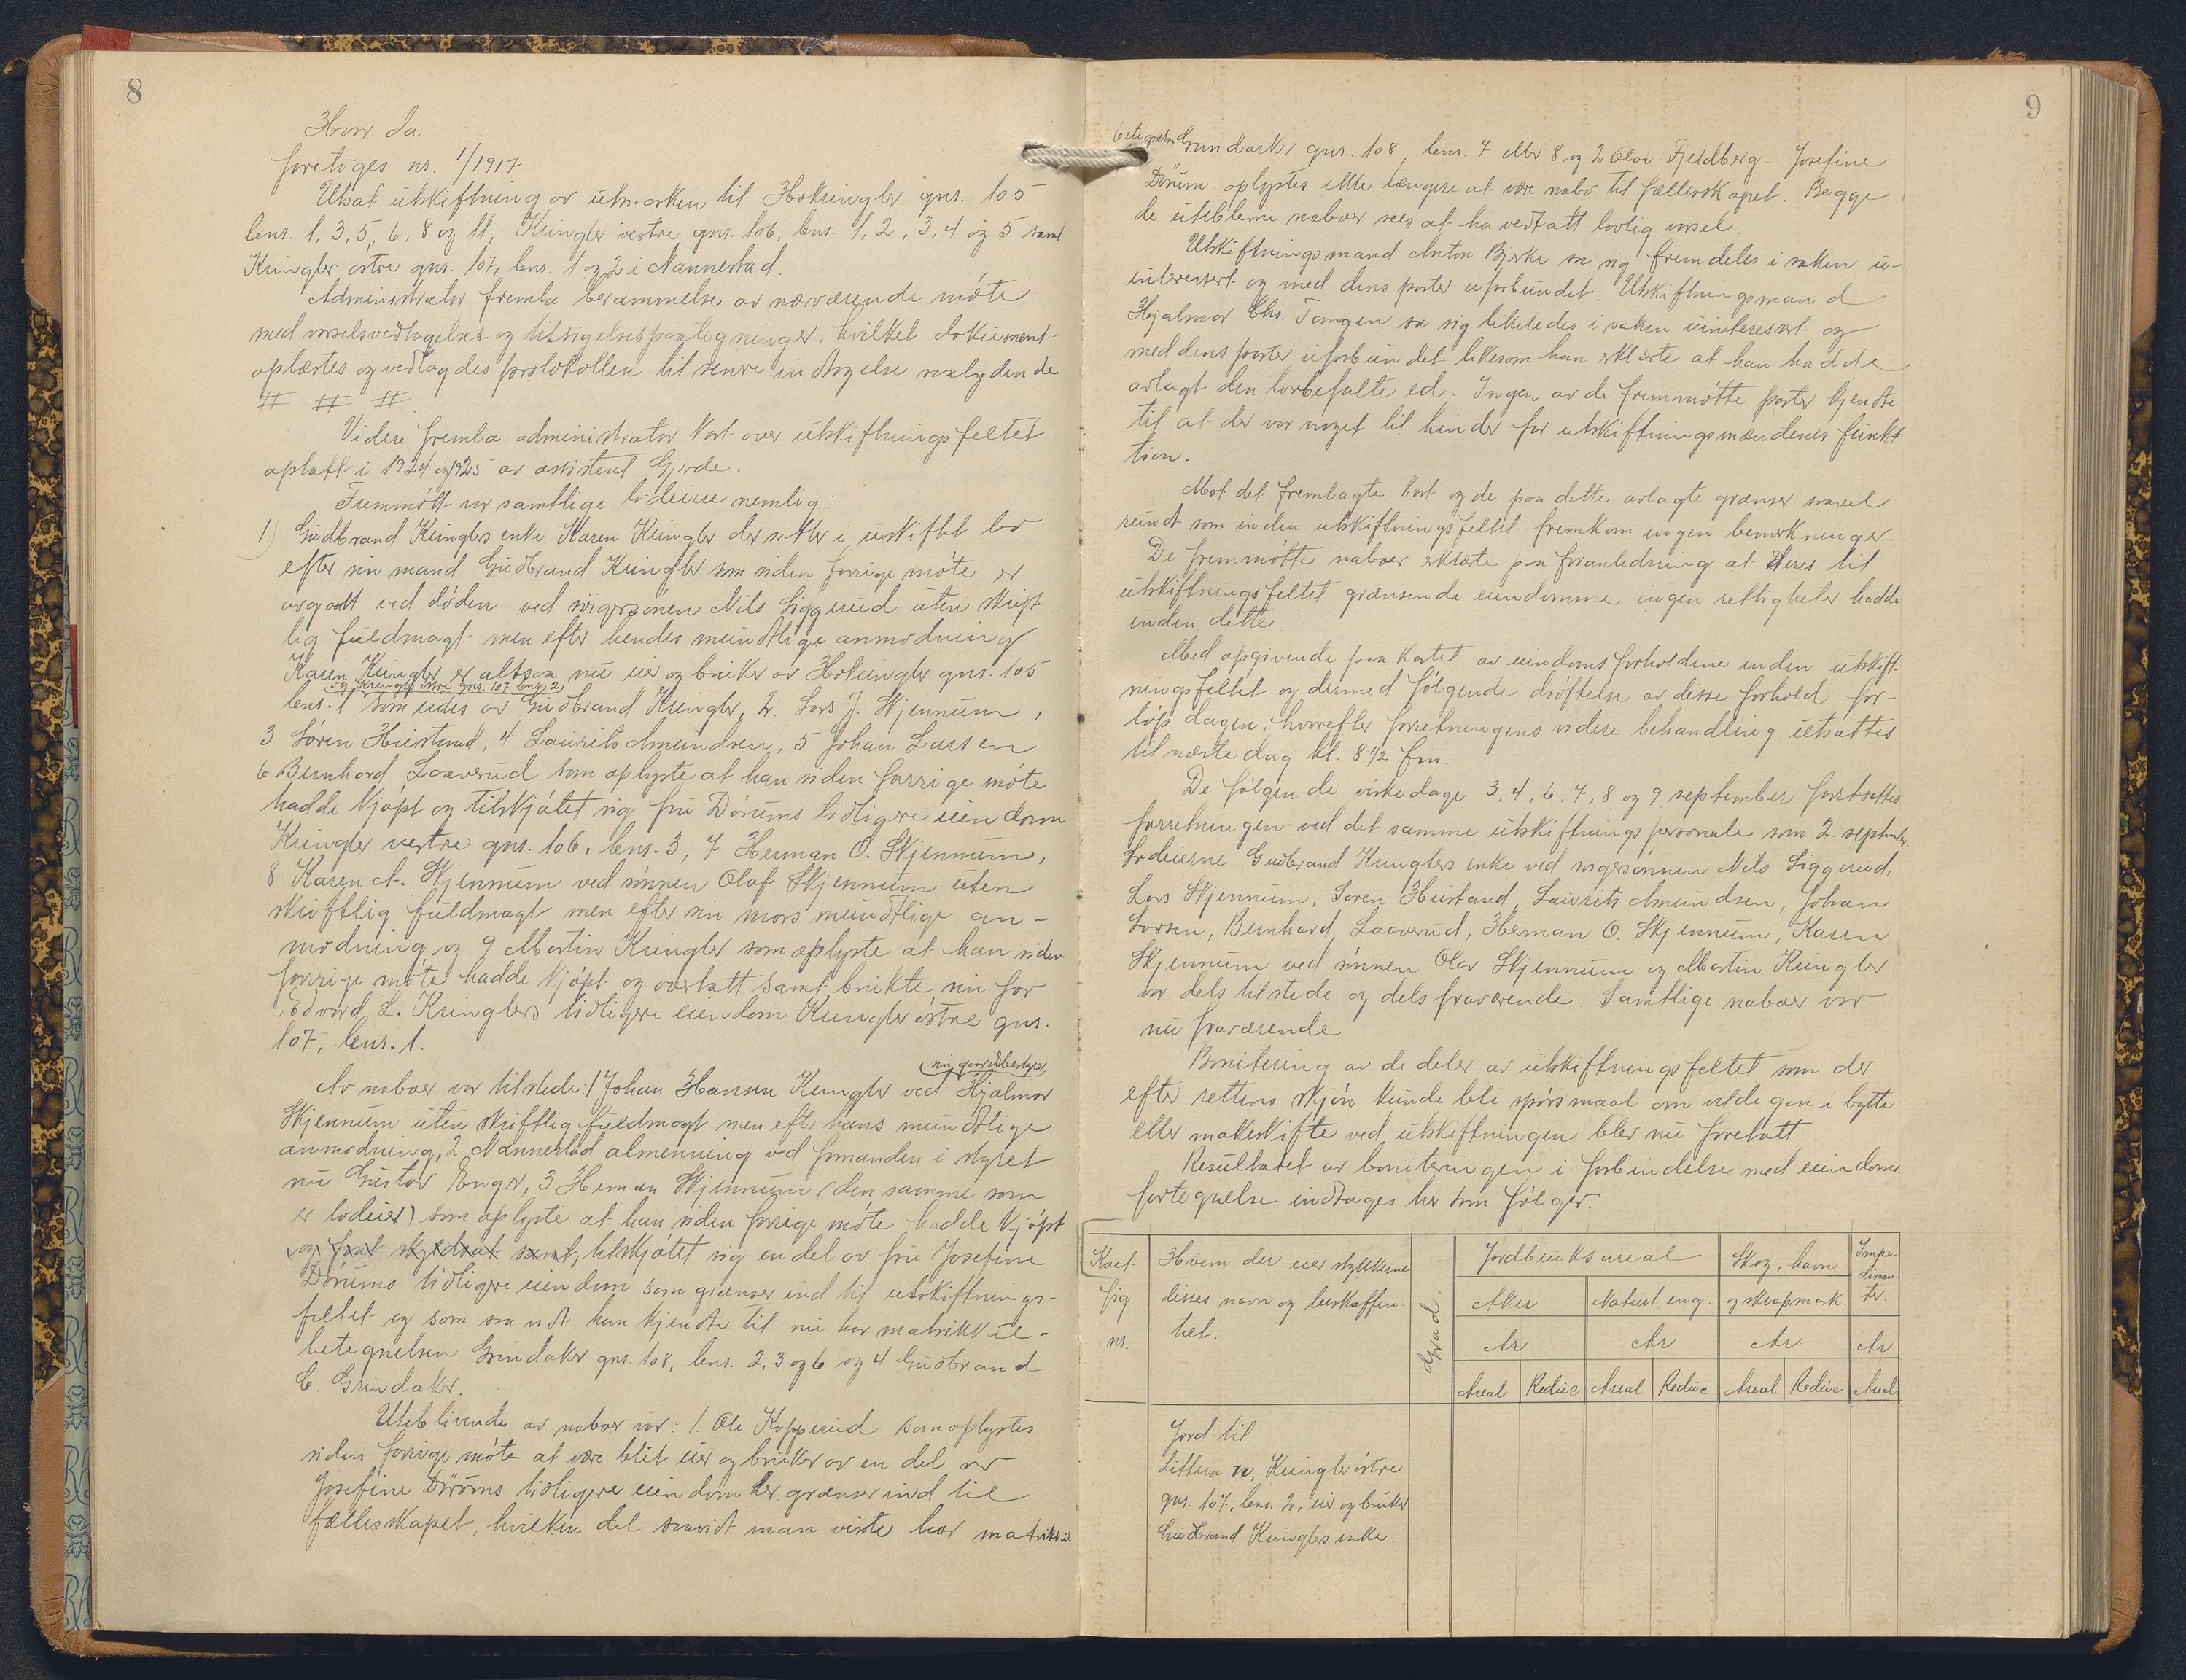 8
Hvor da
foretoges nr. 1/1917
Utsat utskiftning av utmarken til Hokringler gnr. 105
bnr. 1, 3, 5, 6, 8 og 11, Kringler vestre gnr. 106, bnr. 1, 2, 3, 4 og 5 samt
Kringler østre gnr. 107, bnr. 1 og 2 i Nannestad.
Administrator fremla berammelse av nærværende møte
med varselsvedtagelses- og tilsigelsespaategninger, hvilket dokument
oplæstes og vedlagdes protokollen til senere indtagelse saalydende
# # #
Videre fremla administrator kart over utskiftningsfeltet
optatt i 1924 og 1925 av assistent Gjerde.
Fremmøtt var samtlige lodeiere nemlig:
1.) Gudbrand Kringlers enke Karen Kringler der sitter i uskiftet bo
efter sin mand Gudbrand Kringler som siden forrige møte er
avgaatt ved døden ved svigersønen Nils Liggerud uten skrift
lig fuldmagt men efter hendes mundtlige anmodning
Karen Kringler er altsaa nu eier og bruker av Hokringler gnr. 105
og Kringler østre gnr. 107 bnr. 2
bnr. 1 som eides av Gudbrand Kringler, 2. Lars J. Skjennum,
3 Søren Huistuad, 4 Laurits Amundsen, 5 Johan Larsen
6 Bernhard Laaverud som oplyste at han siden forrige møte
hadde kjøpt og tilskjøtet sig fru Dørums tidligere eiendom
Kringler vestre gnr. 106, bnr. 3, 7 Herman O. Skjennum,
8 Karen A. Skjennum ved sønnen Olaf Skjennum uten
skriftlig fuldmagt men efter sin mors mundtlige an-
modning og 9 Martin Kringler som oplyste at han siden
forrige møte hadde kjøpt og overtatt samt brukte nu før
Edvard L. Kringlers tidligere eiendom Kringler østre gnr.
107, bnr. 1.
nu gaardbestyrer
Av naboer var tilstede: 1 Johan Hansen Kringler ved Hjalmar
Skjennum uten skriftlig fuldmagt men efter hans mundtlige
anmodning, 2 Nannestad almenning ved formanden i styret
nu Gustav Enger, 3 Herman Skjennum (den samme som
er lodeier) som oplyste at han siden forrige møte hadde kjøpt
og faat skyldsat samt, tilskjøtet sig en del av fru Josefine
Dørums tidligere eiendom som grænser ind til utskiftnings-
feltet og som saavidt han kjendte til nu har matrikkul-
betegnelsen Grindaker gnr. 108, bnr. 2, 3 og 6 og 4 Gudbrand
C. Grindaker.
Uteblivende av naboer var: 1. Ole Kopperud som oplystes
siden forrige møte at være blit eier og bruker av en del av
Josefine Dørums tidligere eiendom der grænser ind til
fællesskapet, hvilken del saavidt man viste har matrikkul
9
betegnelsen Grindaker gnr. 108, bnr. 7 eller 8 og 2 Olai Fjeldberg. Josefine
Dørum oplystes ikke længere at være nabo til fællesskapet. Begge
de uteblevne naboer sees at ha vedtatt lovlig varsel.
Utskiftningsmand Anton Bjerke sa sig fremdeles i saken u-
interessert og med dens parter uforbundet. Utskiftningsmand
Hjalmar Chr. Tangen sa sig likeledes i saken uinteressert og
med dens parter uforbundet likesom han erklærte at han hadde
avlagt den lovbefalte ed. Ingen av de fremmøtte parter kjendte
til at der var noget til hinder for utskiftningsmændenes funkt
tion.
Mot det fremlagte kart og de paa dette avlagte grænser saavel
rundt som inden utskiftningsfeltet fremkom ingen bemerkninger.
De fremmøtte naboer erklærte paa foranledning at deres til
utskiftningsfeltet grænsende eiendomme ingen rettigheter hadde
inden dette
Med opgivende paa kartet av eiendomsforholdene inden utskift-
ningsfeltet og dermed følgende drøftelse av disse forhold for-
løp dagen, hvorefter forretningens videre behandling utsattes
til næste dag kl. 8 1/2 fm.
De følgende virkedage 3, 4, 6, 7, 8 og 9 september fortsattes
forretningen ved det samme utskiftningspersonale som 2. september.
Lodeierne Gudbrand Kringlers enke ved svigersønnen Nils Liggerud,
Lars Skjennum, Søren Huistuad, Laurits Amundsen, Johan
Larsen, Bernhard Laaverud, Herman O. Skjennum, Karen
Skjennum ved sønnen Olav Skjennum og Martin Kringler
var dels tilstede og dels fraværende. Samtlige naboer var
nu fraværende.
Bonitering av de deler av utskiftningsfeltet som der
efter rettens skjøn kunde bli spørsmaal om vilde gaa i bytte
eller makeskifte ved utskiftningen blev nu foretatt.
Resultatet av boniteringen i forbindelse med eiendoms
fortegnelse indtages her som følger.
Kart-
fig
nr.
Hvem der eier stykkerne
disses navn og beskaffen-
het.
Grad.
Jordbruksareal
Aker
Naturl. eng.
Skog, havn
og skrapmark.
Impe-
dimen-
ter.
Ar Ar Ar Ar
Areal Reduc Areal Reduc Areal Reduc Areal
Jord til
Littera n, Kringler østre
gnr. 107, bnr. 2, eier og bruker
Gudbrand Kringlers enke.